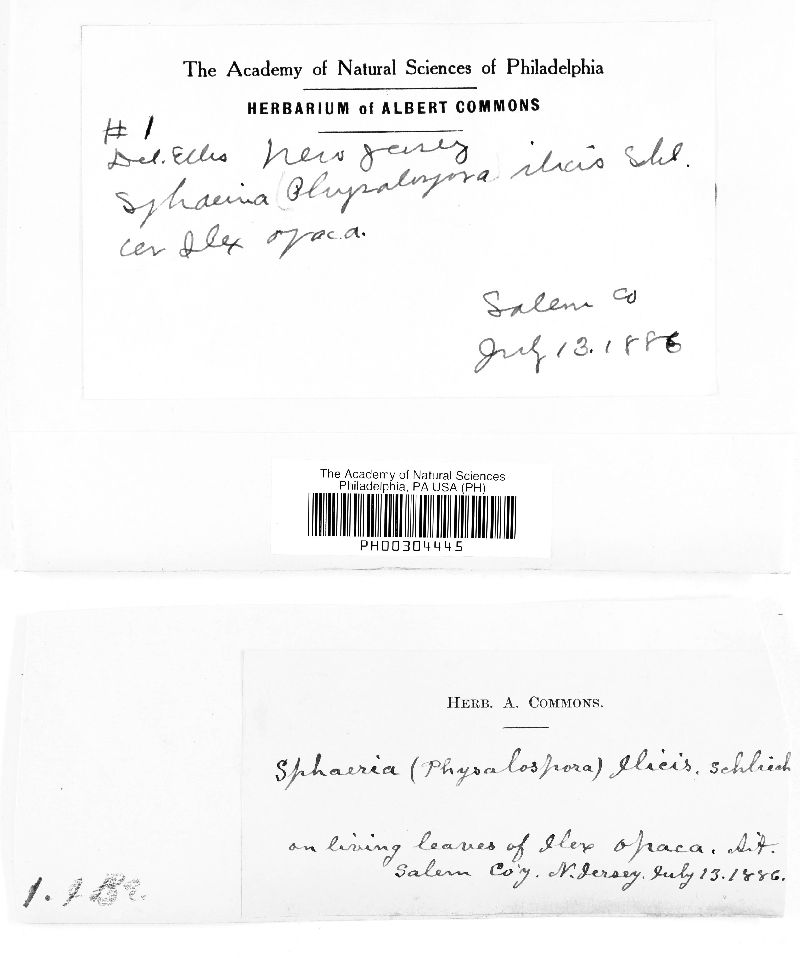 The Academy of Natural Sciences of Philadelphia
HERBARIUM of ALBERT COMMONS
# 1
Det. Ellis New Jersey
Sphaeria (Physalospora ilicis Schl.
on Ilex opaca.
Salem Co
July 13. 1886
The Academy of Natural Sciences
Philadelphia, PA USA (PH)
PH00304445
HERB. A. COMMONS.
Sphaeria (Physalospora) Ilicis. Schleich
on living leaves of Ilex opaca. Ait.
Salem Co'y. N. Jersey. July 13. 1886.
1.